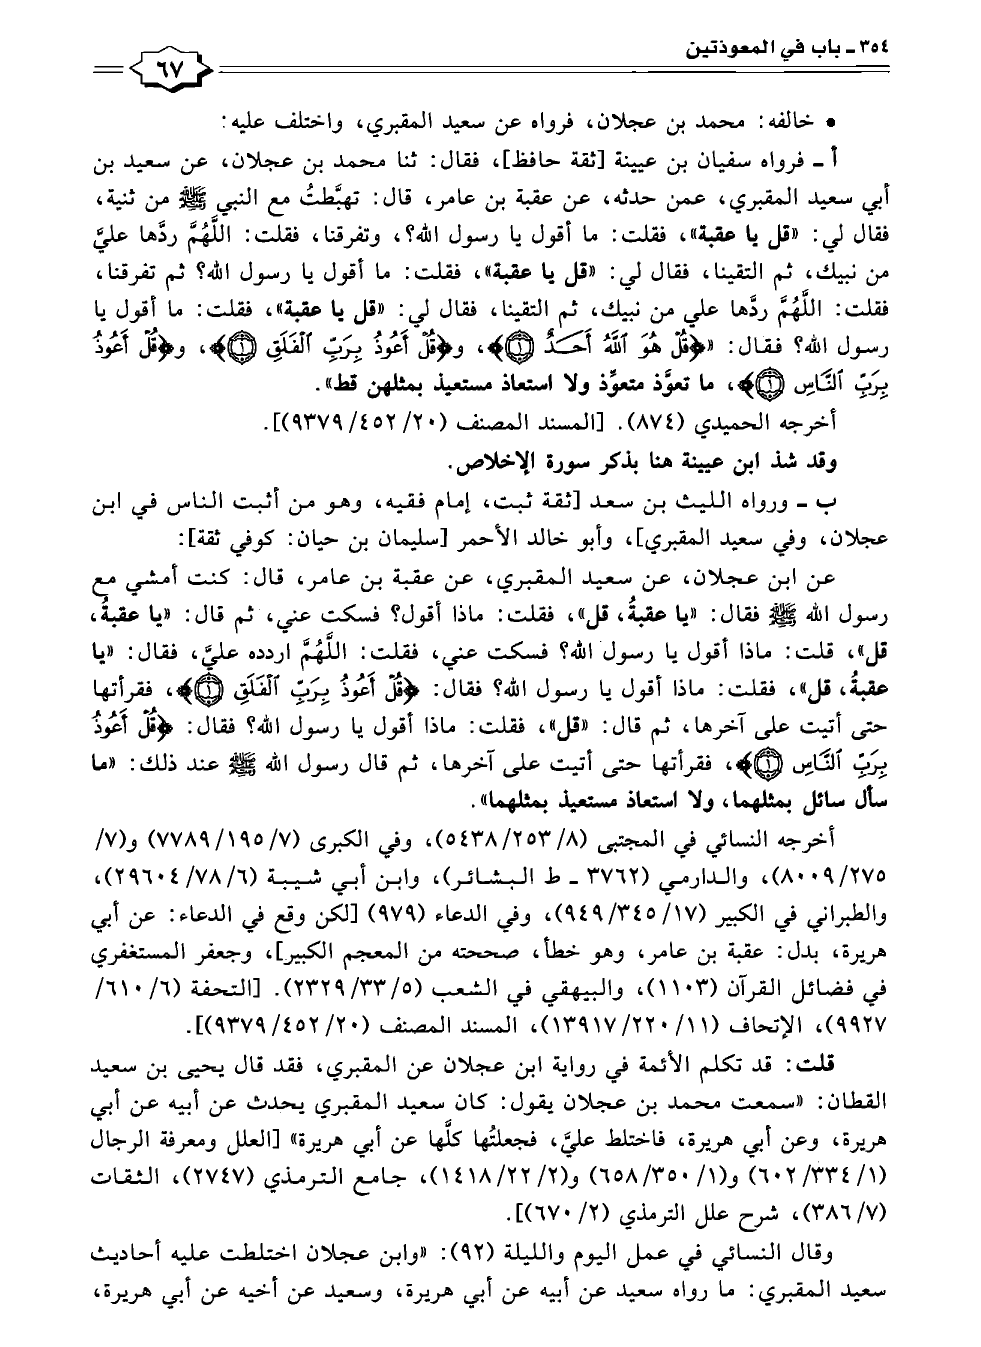 ٣٥٤ ـ باب في المعوذتين
٦٧
• خالفه: محمد بن عجلان، فرواه عن سعيد المقبري، واختلف عليه:
أ ـ فرواه سفيان بن عيينة [ثقة حافظ]، فقال: ثنا محمد بن عجلان، عن سعيد بن
أبي سعيد المقبري، عمن حدثه، عن عقبة بن عامر، قال: تهبَّطتُ مع النبي ﷺ من ثنية،
فقال لي: «قل يا عقبة»، فقلت: ما أقول يا رسول الله؟، وتفرقنا، فقلت: اللَّهُمَّ ردَّها عليَّ
من نبيك، ثم التقينا، فقال لي: «قل يا عقبة»، فقلت: ما أقول يا رسول الله؟ ثم تفرقنا،
فقلت: اللَّهُمَّ ردَّها علي من نبيك، ثم التقينا، فقال لي: «قل يا عقبة»، فقلت: ما أقول يا
رسول الله؟ فقال: «﴿قُلْ هُوَ ٱللَّهُ أَحَدٌ ۝١﴾، و﴿قُلْ أَعُوذُ بِرَبِّ ٱلْفَلَقِ ۝١﴾، و﴿قُلْ أَعُوذُ
بِرَبِّ ٱلنَّاسِ ۝١﴾، ما تعوَّذ متعوِّذ ولا استعاذ مستعيذ بمثلهن قط».
أخرجه الحميدي (٨٧٤). [المسند المصنف (٢٠/ ٤٥٢/ ٩٣٧٩)].
وقد شذ ابن عيينة هنا بذكر سورة الإخلاص.
ب ـ ورواه الليث بن سعد [ثقة ثبت، إمام فقيه، وهو من أثبت الناس في ابن
عجلان، وفي سعيد المقبري]، وأبو خالد الأحمر [سليمان بن حيان: كوفي ثقة]:
عن ابن عجلان، عن سعيد المقبري، عن عقبة بن عامر، قال: كنت أمشي مع
رسول الله ﷺ فقال: «يا عقبةُ، قل»، فقلت: ماذا أقول؟ فسكت عني، ثم قال: «يا عقبةُ،
قل»، قلت: ماذا أقول يا رسول الله؟ فسكت عني، فقلت: اللَّهُمَّ اردده عليَّ، فقال: «يا
عقبةُ، قل»، فقلت: ماذا أقول يا رسول الله؟ فقال: ﴿قُلْ أَعُوذُ بِرَبِّ ٱلْفَلَقِ ۝١﴾، فقرأتها
حتى أتيت على آخرها، ثم قال: «قل»، فقلت: ماذا أقول يا رسول الله؟ فقال: ﴿قُلْ أَعُوذُ
بِرَبِّ ٱلنَّاسِ ۝١﴾، فقرأتها حتى أتيت على آخرها، ثم قال رسول الله ﷺ عند ذلك: «ما
سأل سائل بمثلهما، ولا استعاذ مستعيذ بمثلهما».
أخرجه النسائي في المجتبى (٨/ ٢٥٣/ ٥٤٣٨)، وفي الكبرى (٧/ ١٩٥/ ٧٧٨٩) و(٧/
٢٧٥/ ٨٠٠٩)، والدارمي (٣٧٦٢ ـ ط البشائر)، وابن أبي شيبة (٦/ ٧٨/ ٢٩٦٠٤)،
والطبراني في الكبير (١٧/ ٣٤٥/ ٩٤٩)، وفي الدعاء (٩٧٩) [لكن وقع في الدعاء: عن أبي
هريرة، بدل: عقبة بن عامر، وهو خطأ، صححته من المعجم الكبير]، وجعفر المستغفري
في فضائل القرآن (١١٠٣)، والبيهقي في الشعب (٥/ ٣٣/ ٢٣٢٩). [التحفة (٦/ ٦١٠/
٩٩٢٧)، الإتحاف (١١/ ٢٢٠/ ١٣٩١٧)، المسند المصنف (٢٠/ ٤٥٢/ ٩٣٧٩)].
قلت: قد تكلم الأئمة في رواية ابن عجلان عن المقبري، فقد قال يحيى بن سعيد
القطان: «سمعت محمد بن عجلان يقول: كان سعيد المقبري يحدث عن أبيه عن أبي
هريرة، وعن أبي هريرة، فاختلط عليَّ، فجعلتُها كلَّها عن أبي هريرة» [العلل ومعرفة الرجال
(١/ ٣٣٤/ ٦٠٢) و(١/ ٣٥٠/ ٦٥٨) و(٢/ ٢٢/ ١٤١٨)، جامع الترمذي (٢٧٤٧)، الثقات
(٧/ ٣٨٦)، شرح علل الترمذي (٢/ ٦٧٠)].
وقال النسائي في عمل اليوم والليلة (٩٢): «وابن عجلان اختلطت عليه أحاديث
سعيد المقبري: ما رواه سعيد عن أبيه عن أبي هريرة، وسعيد عن أخيه عن أبي هريرة،